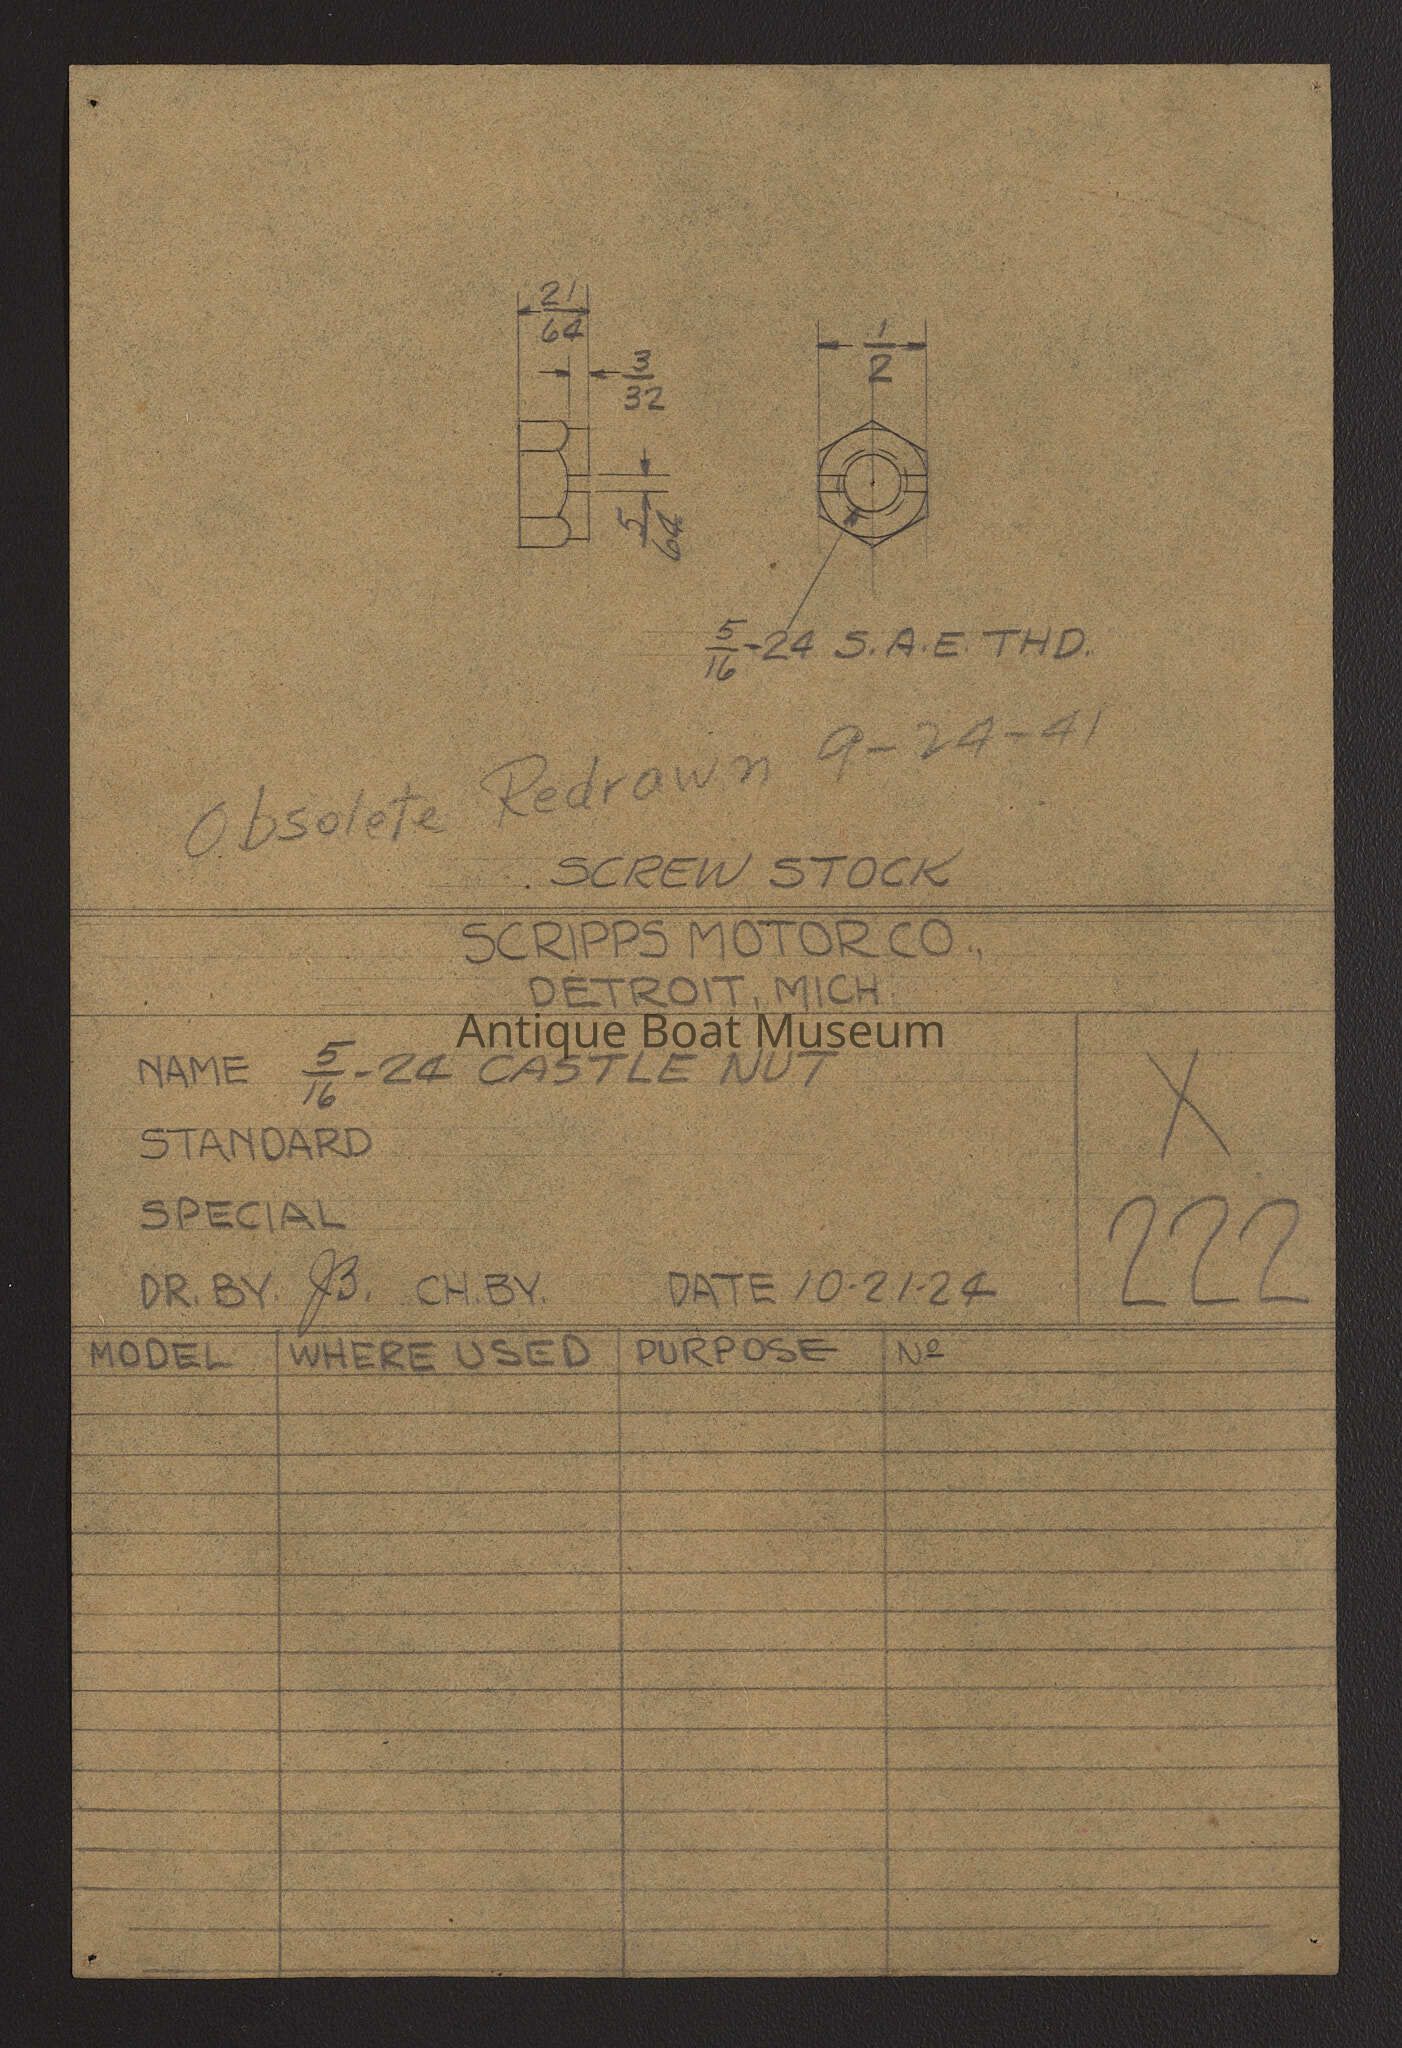 21/64
3/32
1/2
5/64
5/16-24 S.A.E. THD.
Obsolete Redrawn 9-24-41
SCREW STOCK
SCRIPPS MOTOR CO.,
DETROIT, MICH.
Antique Boat Museum
NAME 5/16-24 CASTLE NUT
X
STANDARD
SPECIAL
222
DR. BY. JB. CH. BY. DATE 10-21-24
MODEL WHERE USED PURPOSE Nº